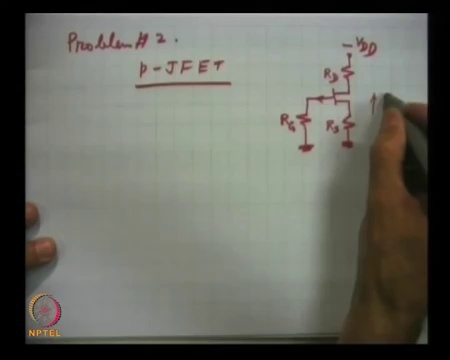 Problem # 2.
p-JFET
-VDD
RD
RG
RS
NPTEL